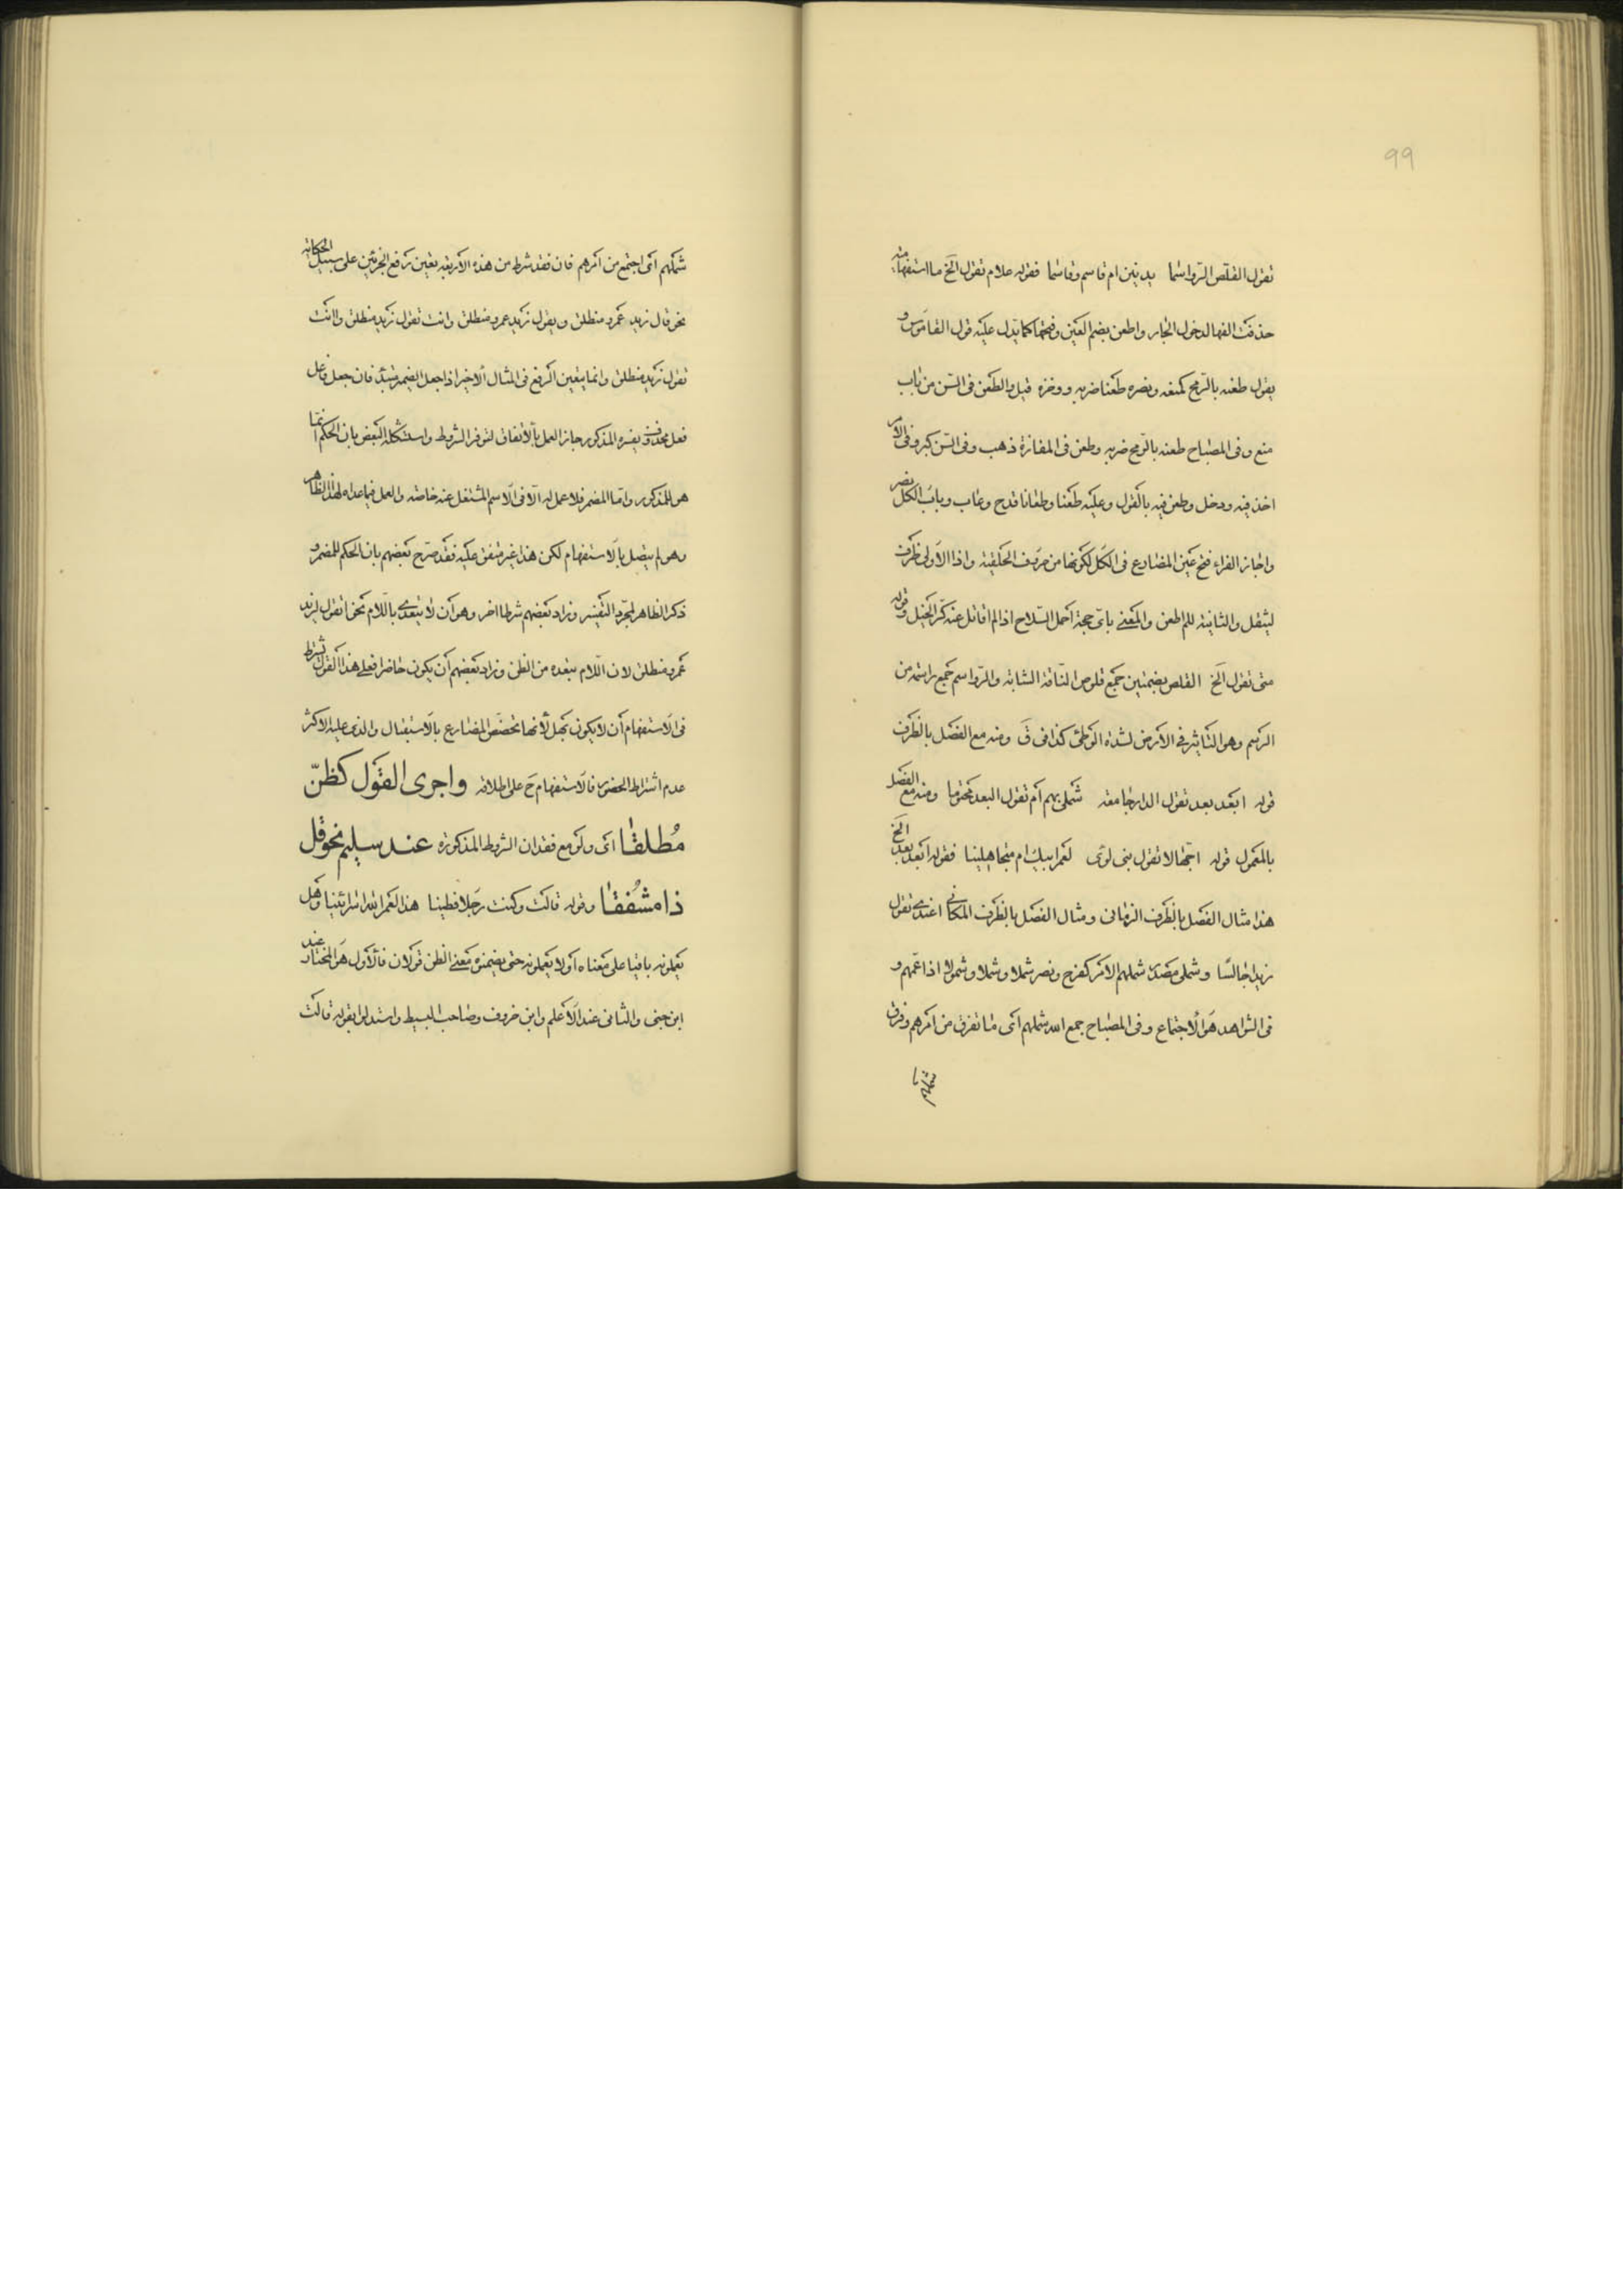 99
تقول القلص الرواسما يدنين ام قاسم وقاسما فقوله علام تقول الخ ما استفهامية
حذفت الفها لدخول الجار واطعن بضم العين وفتحها كما يدل عليه قول القاموس و
يقول طعنه بالرمح كمنعه ونصره طعنا ضربه ووخزه قيل والطعن فى السن من باب
منع وفى المصباح طعنه بالرمح ضربه وطعن فى المفازة ذهب وفى السن كبر وفى الامر
اخذ فيه ودخل وطعن فيه بالقول وعليه طعنا وطعانا قدح وعاب وباب الكل نصر
واجاز الفراء فتح عين المضارع فى الكل لكونها من حروف الحلقية واذا الاولى ظرف
ليثقل والثانية للم اطعن والمعنى باى حجة احمل السلاح اذا لم اقاتل عند كر الخيل وقوله
متى تقول الخ القلص بضمتين جمع قلوص الناقة الشابة والرواسم جمع راسمة من
الرسم وهو التاثير فى الارض لشدة الوطئ كذا فى ق ومنه مع الفصل بالظرف
قوله ابعد بعد تقول الدار جامعة شملى بهم ام تقول البعد محتوما ومنه مع الفصل
بالمعمول قوله اجهالا تقول بنى لوى لعمر ابيك ام متجاهلينا فقوله ابعد بعد الخ
هذا مثال الفصل بالظرف الزمانى ومثال الفصل بالظرف المكانى اعندك تقول
زيدا جالسا وشملى مصدر شملهم الامر كفرح ونصر شملا وشملا وشمولا اذا عمهم و
فى الشواهد هو الاجتماع وفى المصباح جمع الله شملهم اى ما تفرق من امرهم وفرق
شملهم
شملهم اى اجتمع من امرهم فان فقد شرط من هذه الاربعة تعين رفع الجزئين على سبيل الحكاية
نحو قال زيد عمرو منطلق ويقول زيد عمرو منطلق وانت تقول زيد منطلق واانت
تقول زيد منطلق وانما يتعين الرفع فى المثال الاخير اذا جعل الضمير مبتدأ فان جعل فاعل
فعل محذوف يفسره المذكور جاز العمل بالاتفاق لتوفر الشروط واستشكله البعض بان الحكم انما
هو للمذكور واما المضمر فلا عمل له الا فى الاسم المشتغل عنه خاصة والعمل فيما عداه لهذا الظاهر
وهو لم يتصل بالاستفهام لكن هذا غير متفق عليه فقد صرح بعضهم بان الحكم للمضمر و
ذكر الظاهر لمجرد التفسير وزاد بعضهم شرطا اخر وهو ان لا يتعدى باللام نحو اتقول لزيد
عمرو منطلق لان اللام تبعده من الظن وزاد بعضهم ان يكون حاضرا فعلى هذا القول يشترط
فى الاستفهام ان لا يكون بهل لانها تخصص المضارع بالاستقبال والذى عليه الاكثر
عدم اشتراط الحضور فالاستفهام ح على اطلاقه واجرى القول كظن
مطلقا اى ولو مع فقدان الشروط المذكورة عند سليم نحو قل
ذا مشفقا وقوله قالت وكنت رجلا فطينا هذا لعمر الله اسرائينا وهل
يعملونه باقيا على معناه او لا يعملونه حتى يضمنوه معنى الظن قولان فالاول هو المختار عند
ابن جنى والثانى عند الاعلم وابن خروف وصاحب البسيط واستدلوا بقوله قالت